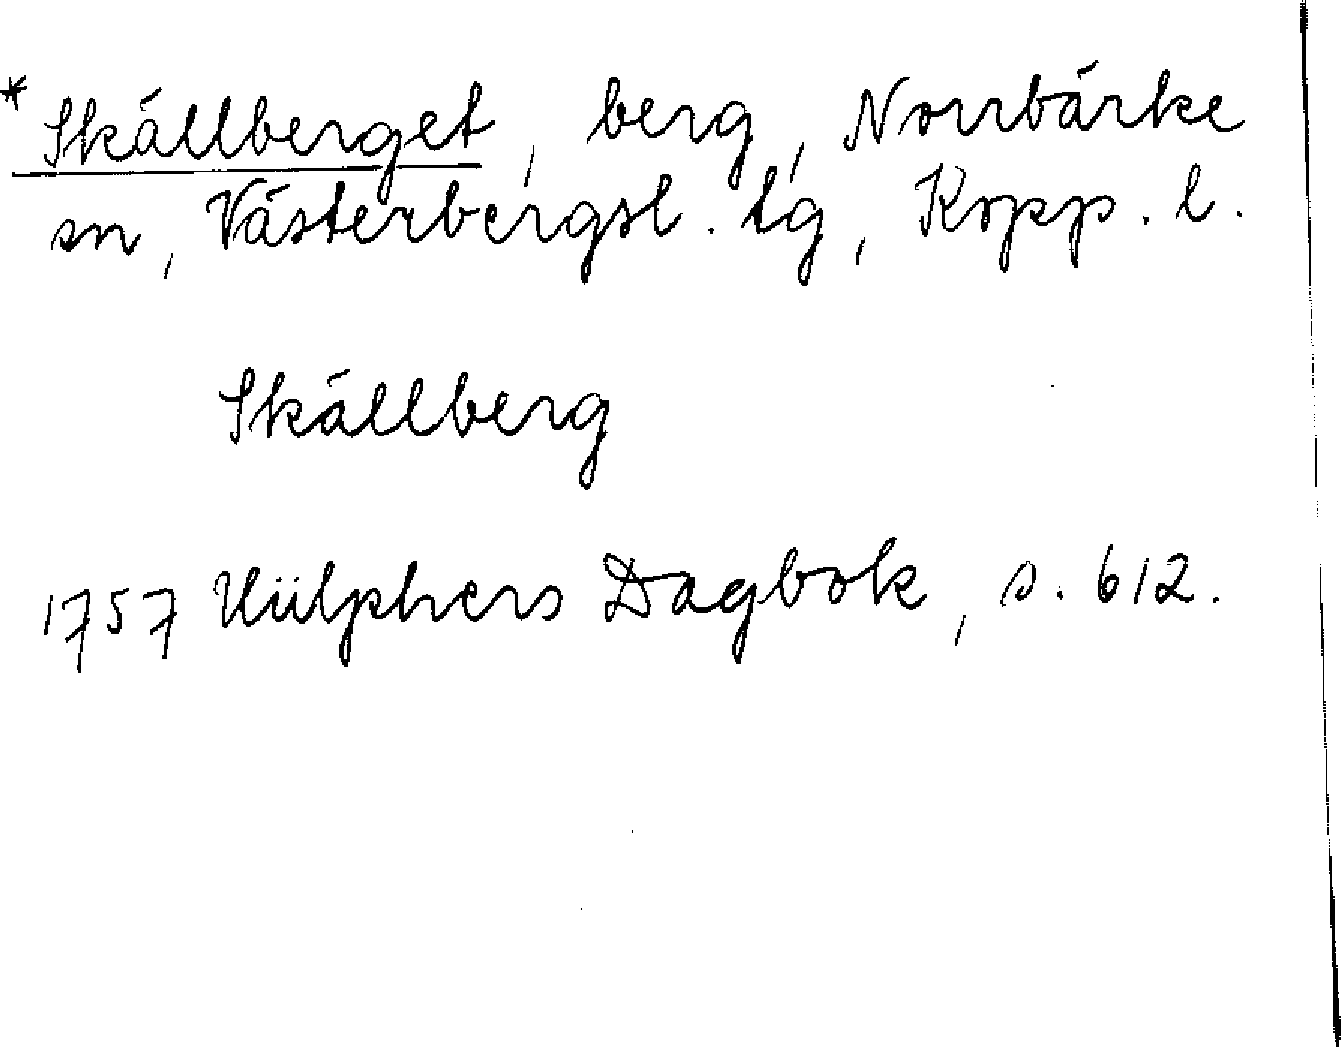 *Skällberget, berg, Norrbärke
sn, Västerbergsl. tg, Kopp. l.
Skällberg
1757 Hülphers Dagbok, s. 612.